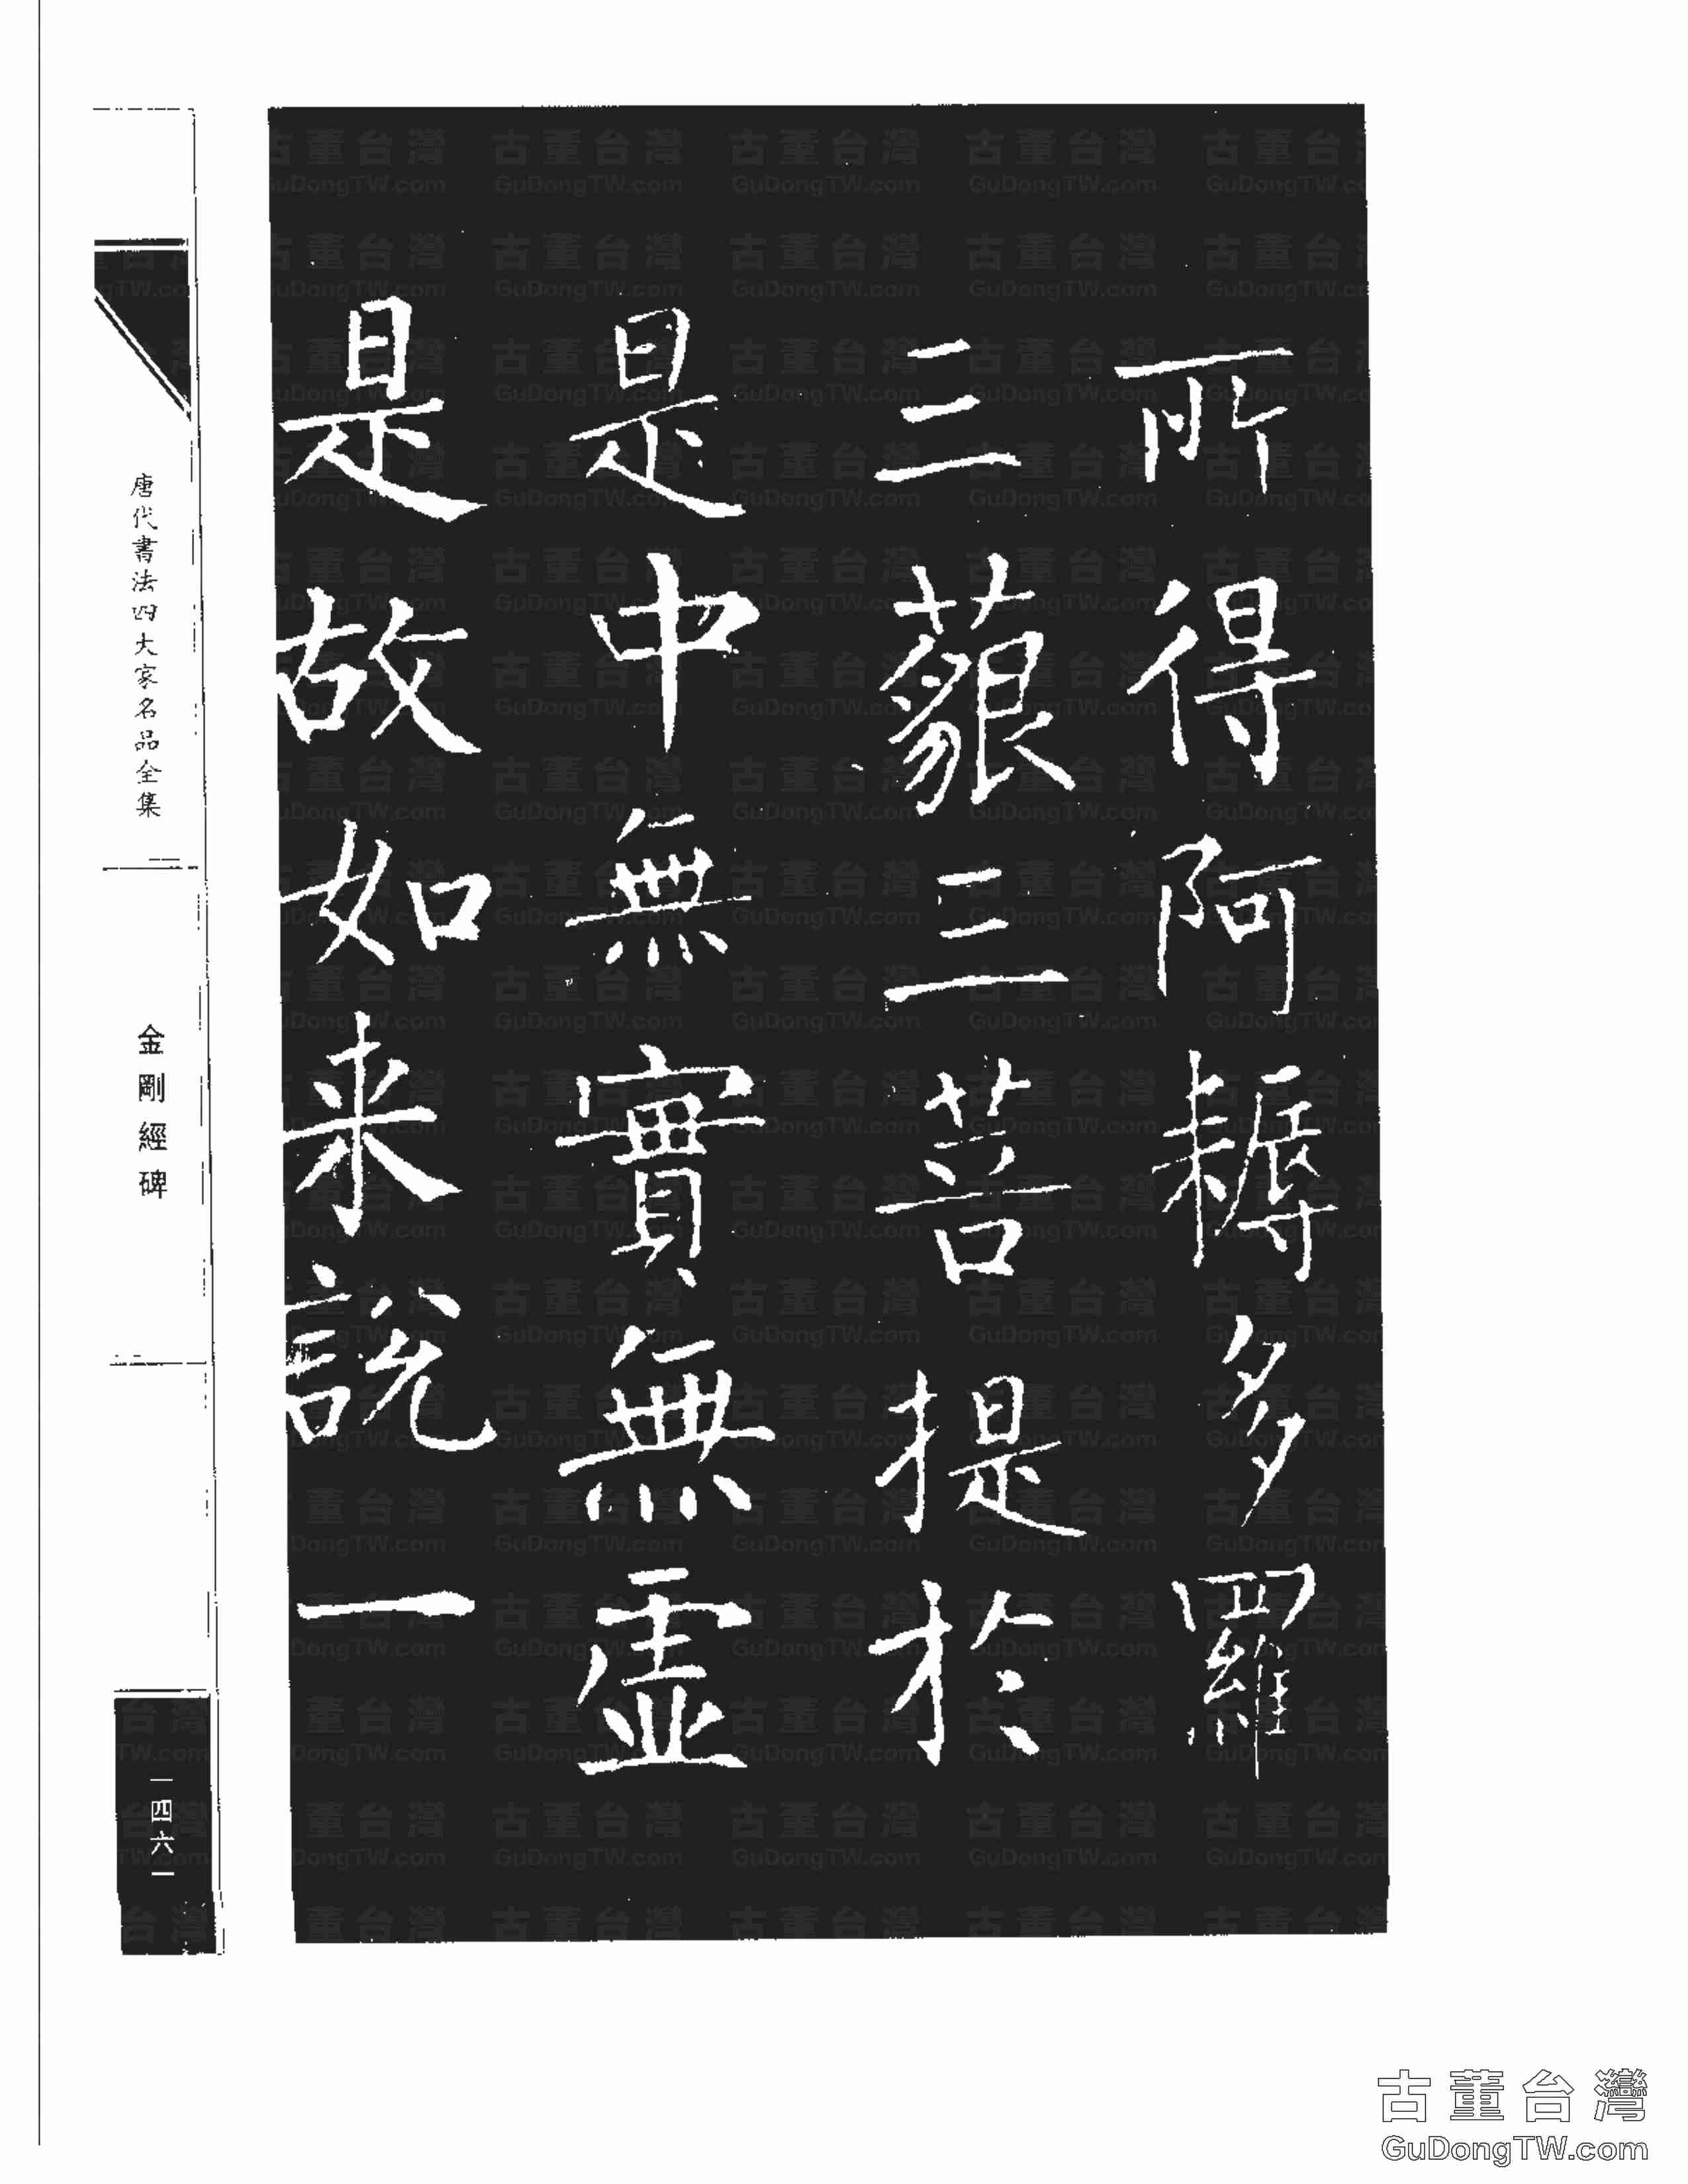 所得阿耨多羅
三藐三菩提於
是中無實無虛
是故如来說一
唐代書法四大家名品全集
金剛經碑
一四六一
古董台灣
GuDongTW.com